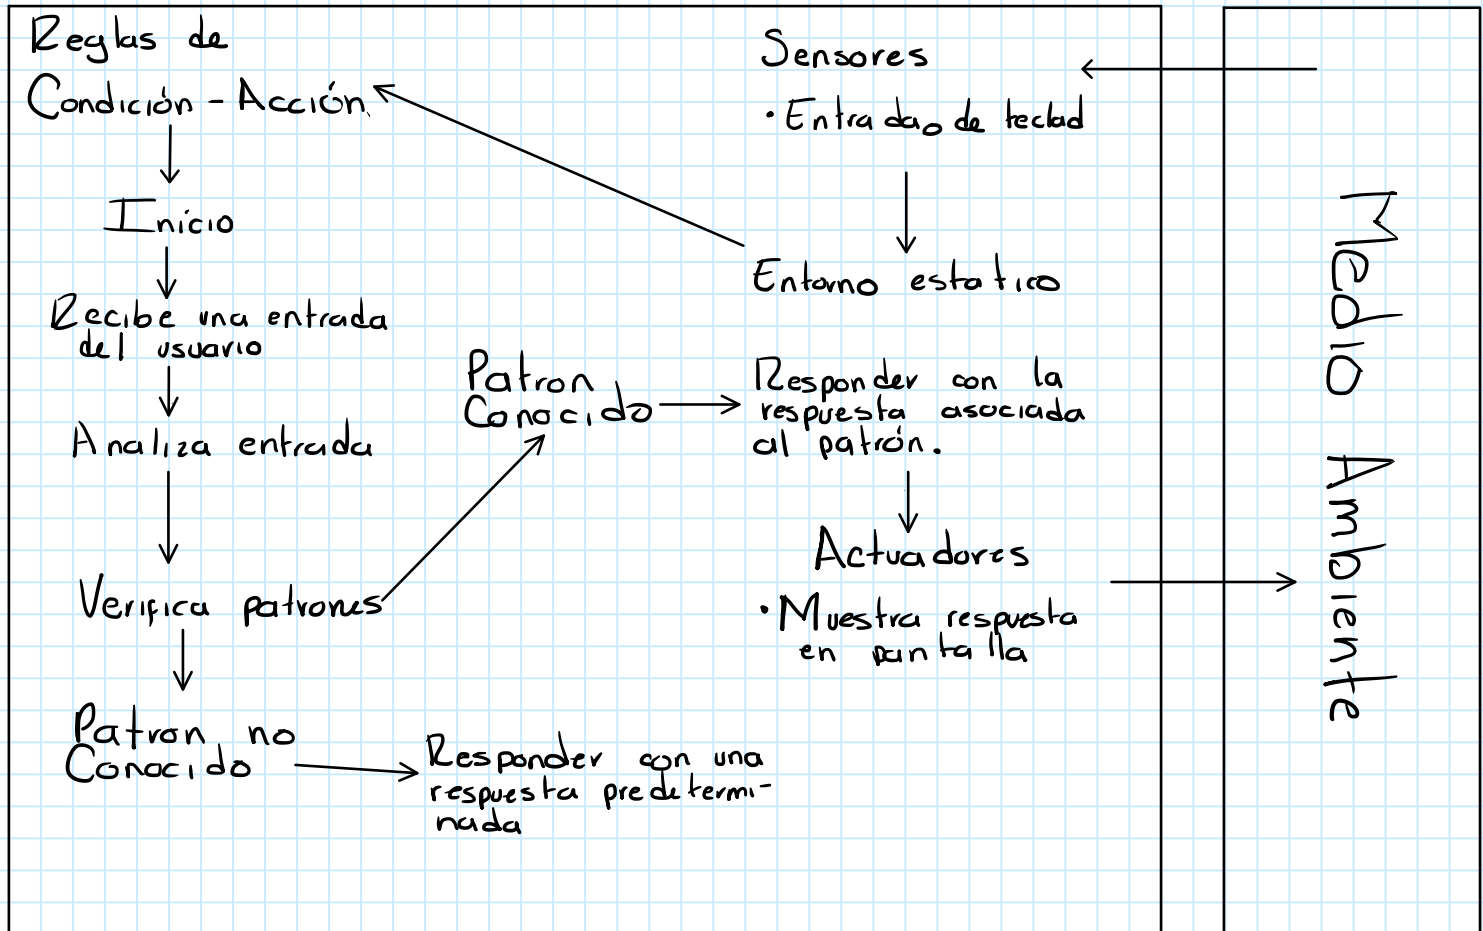 Reglas de
Condición - Acción
Inicio
Recibe una entrada
del usuario
Analiza entrada
Verifica patrones
Patron no
Conocido
Responder con una
respuesta predetermi-
nada
Patron
Conocido
Sensores
• Entrada de teclado
Entorno estatico
Responder con la
respuesta asociada
al patrón.
Actuadores
• Muestra respuesta
en pantalla
Medio Ambiente